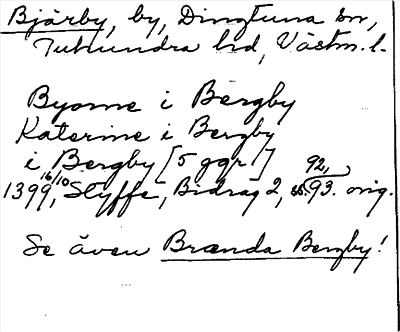 Bjärby, by, Dingtuna sn,
Tuhundra hd, Västm. l.
Byorne i Bergby
Katerine i Bergby
i Bergby [5 ggr!]
1399 16/10, Styffe, Bidrag 2, s. 92, 93. orig.
Se även Brænda Bergby!